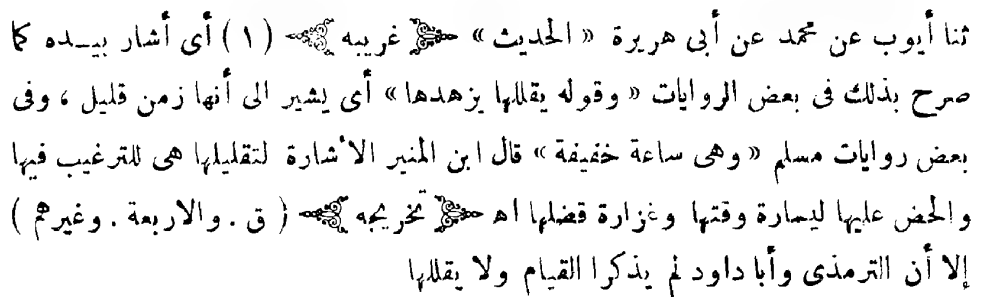 ثنا أيوب عن محمد عن أبى هريرة « الحديث » غريبه (١) أى أشار بيده كما
صرح بذلك فى بعض الروايات « وقوله يقللها يزهدها » أى يشير الى أنها زمن قليل ، وفى
بعض روايات مسلم « وهى ساعة خفيفة » قال ابن المنير الأشارة لتقليلها هى للترغيب فيها
والحض عليها ليسارة وقتها وغزارة فضلها اهـ تخريجه ( ق . والاربعة . وغيرهم )
إلا أن الترمذى وأبا داود لم يذكرا القيام ولا يقللها